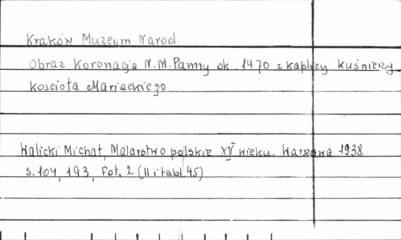 Kraków Muzeum Narod.
Obraz Koronacja N.M.Panny ok. 1470 z kaplicy kuśnierzy
kościoła Mariackiego
Walicki Michał, Malarstwo polskie XV wieku. Warszawa 1938.
s. 104, 193, Fot. 2 (II i tabl. 45)